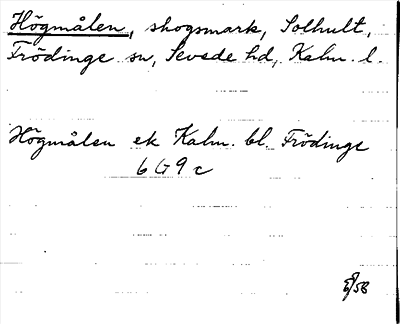 Högmålen, skogsmark, Solhult,
Frödinge sn, Sevede hd, Kalm. l.
Högmålen ek Kalm. bl. Frödinge
6 G 9 c
58